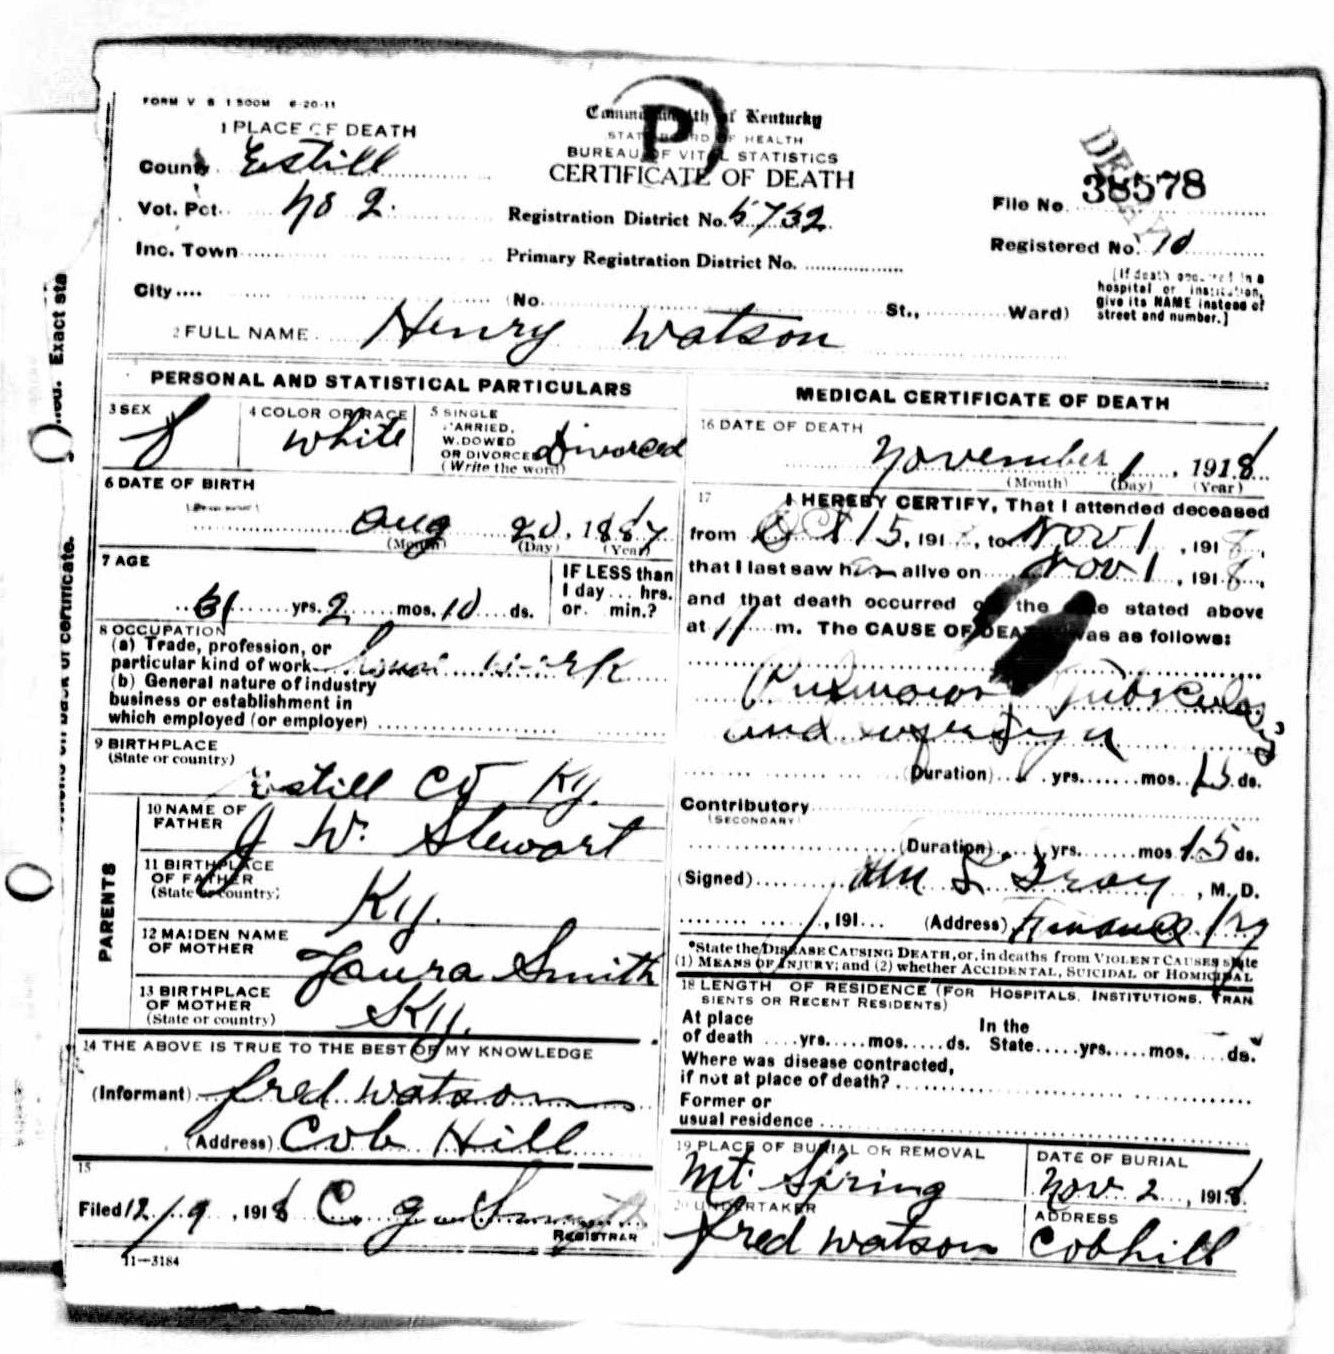 FORM V S 1 500M 6-20-11
1 PLACE OF DEATH
County Estill
Vot. Pct. No 2.
Inc. Town
City
Commonwealth of Kentucky
STATE BOARD OF HEALTH
BUREAU OF VITAL STATISTICS
CERTIFICATE OF DEATH
P
Registration District No. 5732
Primary Registration District No.
(No. St., Ward)
DELAY
File No. 38578
Registered No. 10
[If death occurred in a
hospital or institution,
give its NAME instead of
street and number.]
2 FULL NAME Henry Watson
PERSONAL AND STATISTICAL PARTICULARS
3 SEX f
4 COLOR OR RACE white
5 SINGLE
MARRIED,
WIDOWED
OR DIVORCED Divorced
(Write the word)
6 DATE OF BIRTH
Aug 20, 1887
(Month) (Day) (Year)
7 AGE
31 yrs. 2 mos. 10 ds.
IF LESS than
1 day ... hrs.
or min.?
8 OCCUPATION
(a) Trade, profession, or
particular kind of work House work
(b) General nature of industry
business or establishment in
which employed (or employer)
9 BIRTHPLACE
(State or country)
Estill Co Ky.
PARENTS
10 NAME OF
FATHER J W. Stewart
11 BIRTHPLACE
OF FATHER
(State or country) Ky.
12 MAIDEN NAME
OF MOTHER Laura Smith
13 BIRTHPLACE
OF MOTHER
(State or country) Ky.
14 THE ABOVE IS TRUE TO THE BEST OF MY KNOWLEDGE
(Informant) Fred Watson
(Address) Cob Hill
15
Filed 12/9, 1918 C. G. Smyth
REGISTRAR
11—3184
MEDICAL CERTIFICATE OF DEATH
16 DATE OF DEATH
November 1, 1918
(Month) (Day) (Year)
17 I HEREBY CERTIFY, That I attended deceased
from Oct 15, 191 , to Nov 1, 1918,
that I last saw h alive on Nov 1, 1918,
and that death occurred on the date stated above
at 11 m. The CAUSE OF DEATH was as follows:
Pulmonary Tuberculosis
and
(Duration) yrs. mos. 15 ds.
Contributory
(SECONDARY)
(Duration) yrs. mos 15 ds.
(Signed) , M. D.
, 191 (Address) Ky
*State the DISEASE CAUSING DEATH, or, in deaths from VIOLENT CAUSES state
(1) MEANS OF INJURY; and (2) whether ACCIDENTAL, SUICIDAL or HOMICIDAL
18 LENGTH OF RESIDENCE (FOR HOSPITALS, INSTITUTIONS, TRAN
SIENTS OR RECENT RESIDENTS)
At place
of death yrs. mos. ds.
In the
State yrs. mos. ds.
Where was disease contracted,
if not at place of death?
Former or
usual residence
19 PLACE OF BURIAL OR REMOVAL
Mt. Spring
DATE OF BURIAL
Nov 2, 1918
20 UNDERTAKER
Fred Watson
ADDRESS
Cobhill